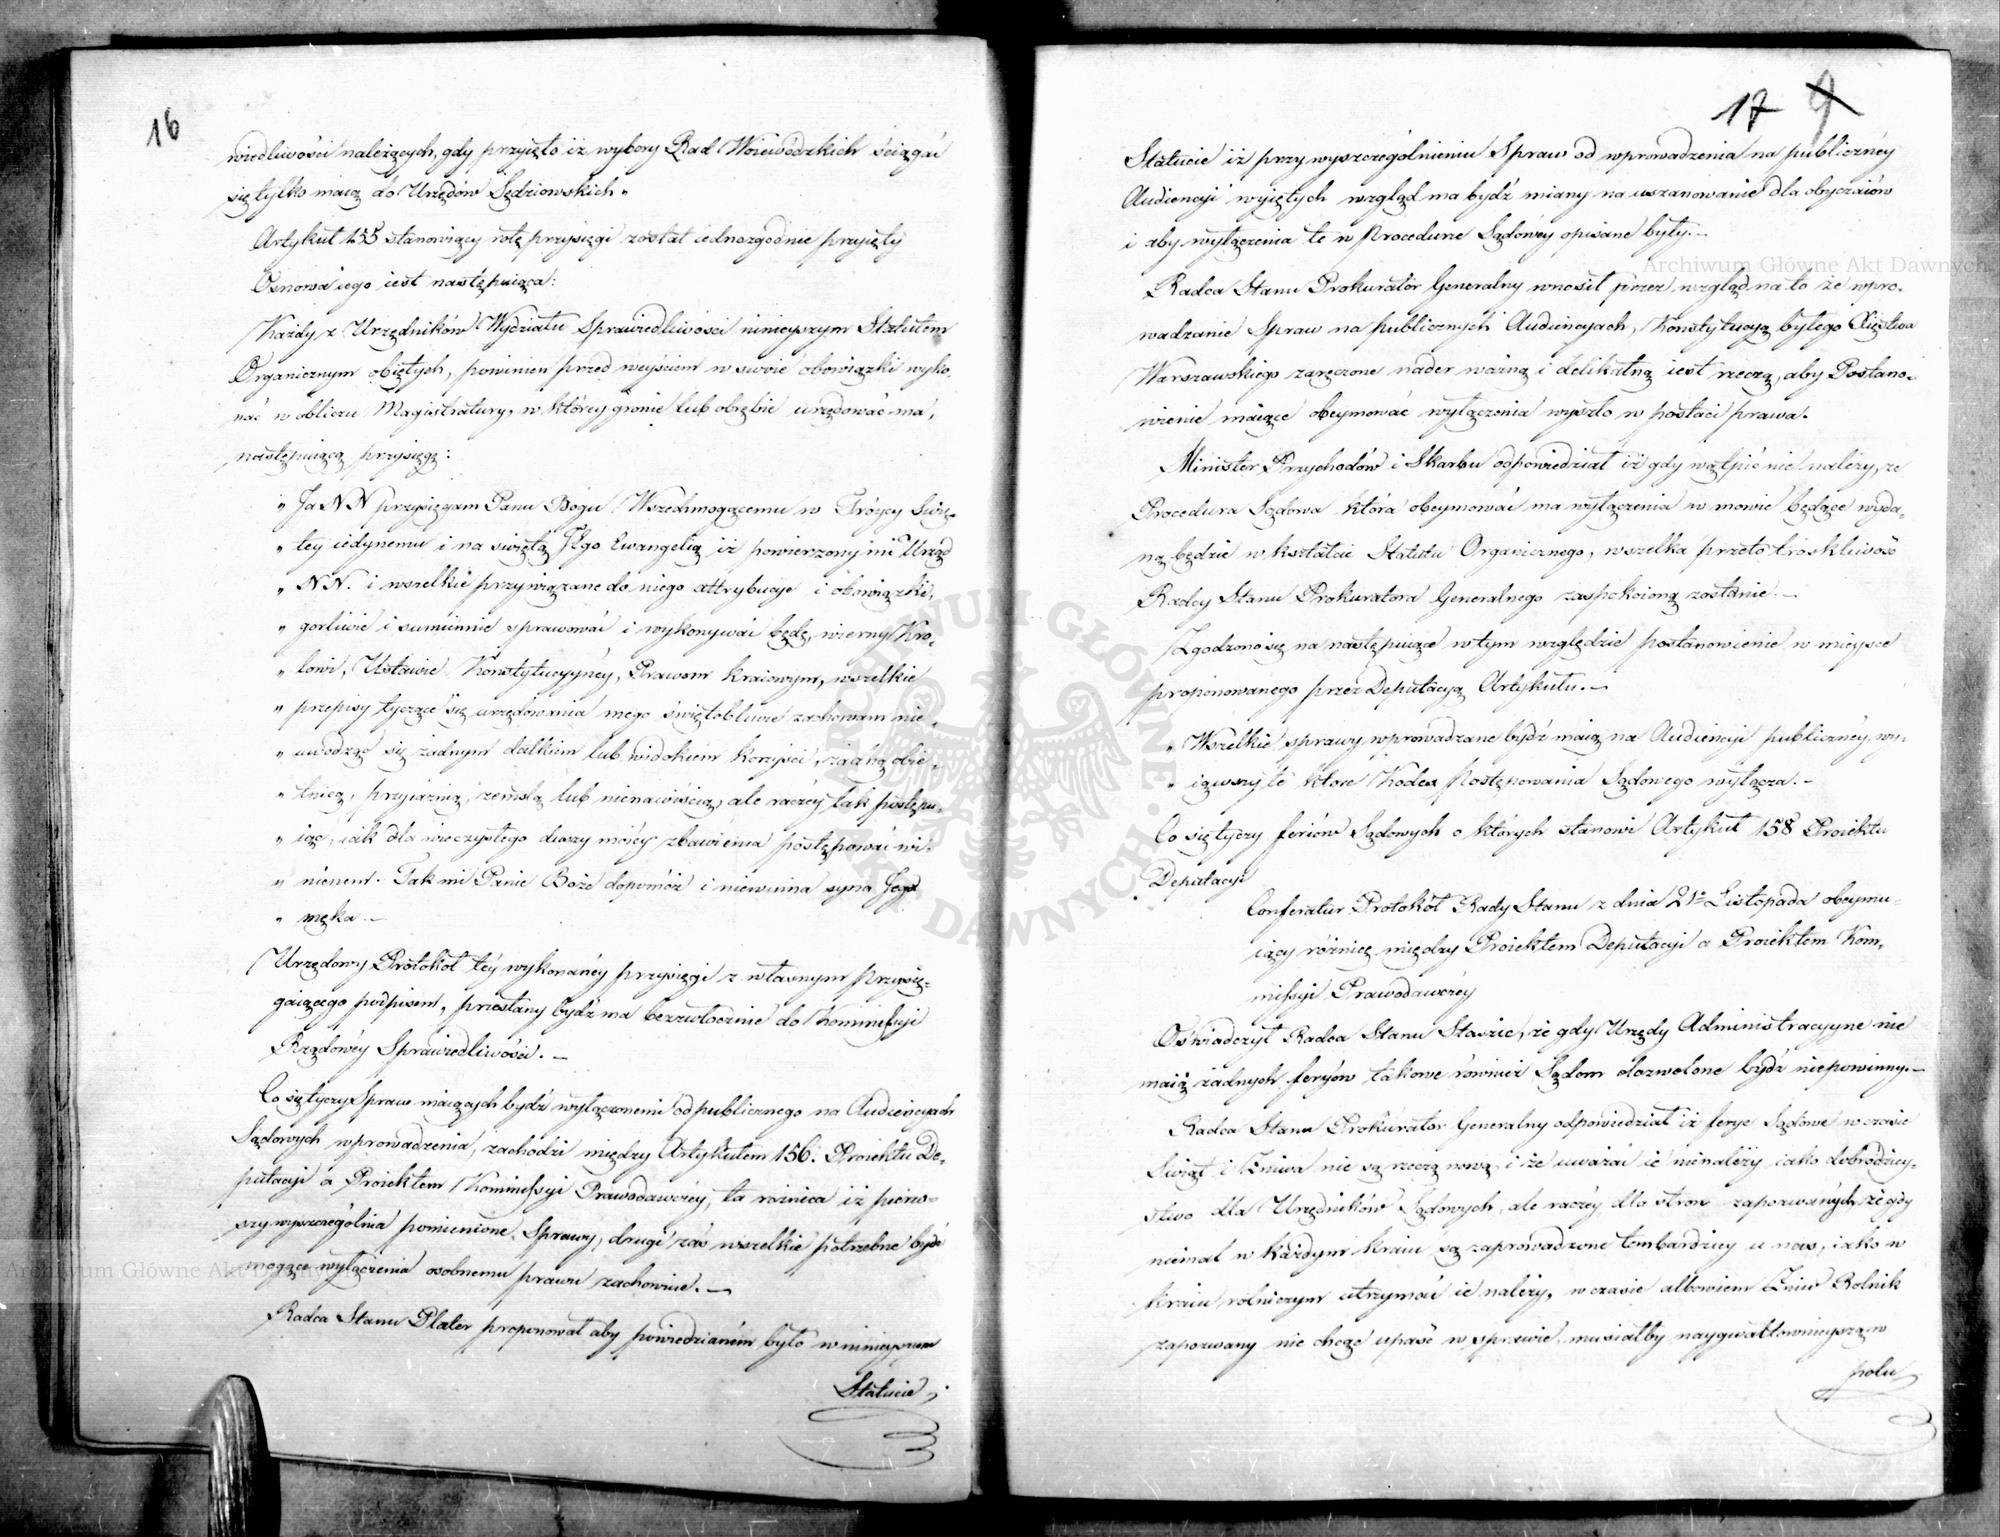 16
wiedliwości należących, gdy przyięto iż wybory Rad Woiewódzkich ściągać
się tylko maią do Urzędów Sędziowskich„
Artykuł 155 stanowiący rotę przysięgi został iednozgodnie przyięty
Osnowa iego iest następuiąca:
Każdy z Urzędników Wydziału Sprawiedliwości ninieyszym Statutem
Organicznym obiętych, powinien przed weyściem w swoie obowiązki wyko,
nać w obliczu Magistratury, w którey gronie lub obrębie urzędować ma,
następuiącą przysięgę:
„ Ja NN przysięgam Panu Bogu Wszechmogącemu w Tróycy Swię-
„ tey iedynemu i na świętą Jego Ewangelią iż powierzony mi Urząd
„ NN. i wszelkie przywiązane do niego attrybucye i obowiązki,
„ gorliwie i sumiennie sprawować i wykonywać będę, wierny Kró-
„ lowi, Ustawie Konstytucyyney, Prawom kraiowym, wszelkie
„ przepisy tyczące się urzędowania mego świętobliwie zachowam nie„
„ uwodząc się żadnym datkiem lub widokiem korzyści, żadną obie„
„ tnicą, przyiaźnią, zemstą lub nienawiścią, ale raczey tak postępu„
„ iąc, iak dla wieczystego duszy moiey zbawienia postępować wi„
„ nienem. Tak mi Panie Boże dopomóż i niewinna syna Jego
„ męka. —
Urzędowy Protokół tey wykonaney przysięgi z własnym Przysię-
gaiącego podpisem, przesłany bydź ma bezzwłocznie do Kommissyi
Rządowey Sprawiedliwości. —
Co się tyczy Spraw maiących bydź wyłączonemi od publicznego na Audiencyach
Sądowych wprowadzenia, zachodzi między Artykułem 156. Proiektu De-
putacyi a Proiektem Kommissyi Prawodawczey, ta różnica iż pierw-
szy wyszczególnia pomienione Sprawy, drugi zaś wszelkie potrzebne bydź
mogące wyłączenia osobnemu prawu zachowuie. —
Radca Stanu Plater proponował aby powiedzianém było w ninieyszym
Statucie
17 9
Statucie iż przy wyszczególnieniu Spraw od wprowadzenia na publiczney
Audiencyi wyiętych wzgląd ma bydź miany na uszanowanie dla obyczaiów
i aby wyłączenia te w Procedurze Sądowey opisane były. —
Radca Stanu Prokurator Generalny wnosił przez wzgląd na to że wpro-
wadzanie Spraw na publicznych Audiencyach, Konstytucyą byłego Xięstwa
Warszawskiego zaręczone nader ważną i delikatną iest rzeczą, aby Postano-
wienie maiące obeymować wyłączenia wyszło w postaci prawa.
Minister Przychodów i Skarbu odpowiedział iż gdy wątpić nie należy, że
Procedura Sądowa która obeymować ma wyłączenia w mowie będące wyda-
ną będzie w kształcie Statutu Organicznego, wszelka przeto troskliwość
Radcy Stanu Prokuratora Generalnego zaspokoioną zostanie. —
Zgodzono się na następuiące w tym względzie postanowienie w mieysce
proponowanego przez Deputacyą Artykułu. —
„ Wszelkie sprawy wprowadzane bydź maią na Audiencyi publiczney, wy-
„ iąwszy te które Kodex Postępowania Sądowego wyłącza. —
Co się tyczy feriów Sądowych o których stanowi Artykuł 158 Proiektu
Deputacyi
Conferatur Protokół Rady Stanu z dnia 21º Listopada obeymu-
iący różnicę między Proiektem Deputacyi a Proiektem Kom-
missyi Prawodawczey
Oświadczył Radca Stanu Staszic, że gdy Urzędy Administracyyne nie
maią żadnych feryów takowe również Sądom dozwolone bydź niepowinny. —
Radca Stanu Prokurator Generalny odpowiedział iż ferye Sądowe w czasie
Świąt i Żniwa nie są rzeczą nową, i że uważać ie nienależy iako dobrodziey-
stwo dla Urzędników Sądowych, ale raczey dla stron zapozwanych, że gdy
nieimal w każdym kraiu są zaprowadzone tembardziey u nas, iako w
kraiu rolniczym utrzymać ie należy, w czasie albowiem Żniw Rolnik
zapozwany nie chcąc upaść w sprawie, musiałby naygwałtownieyszą w
polu